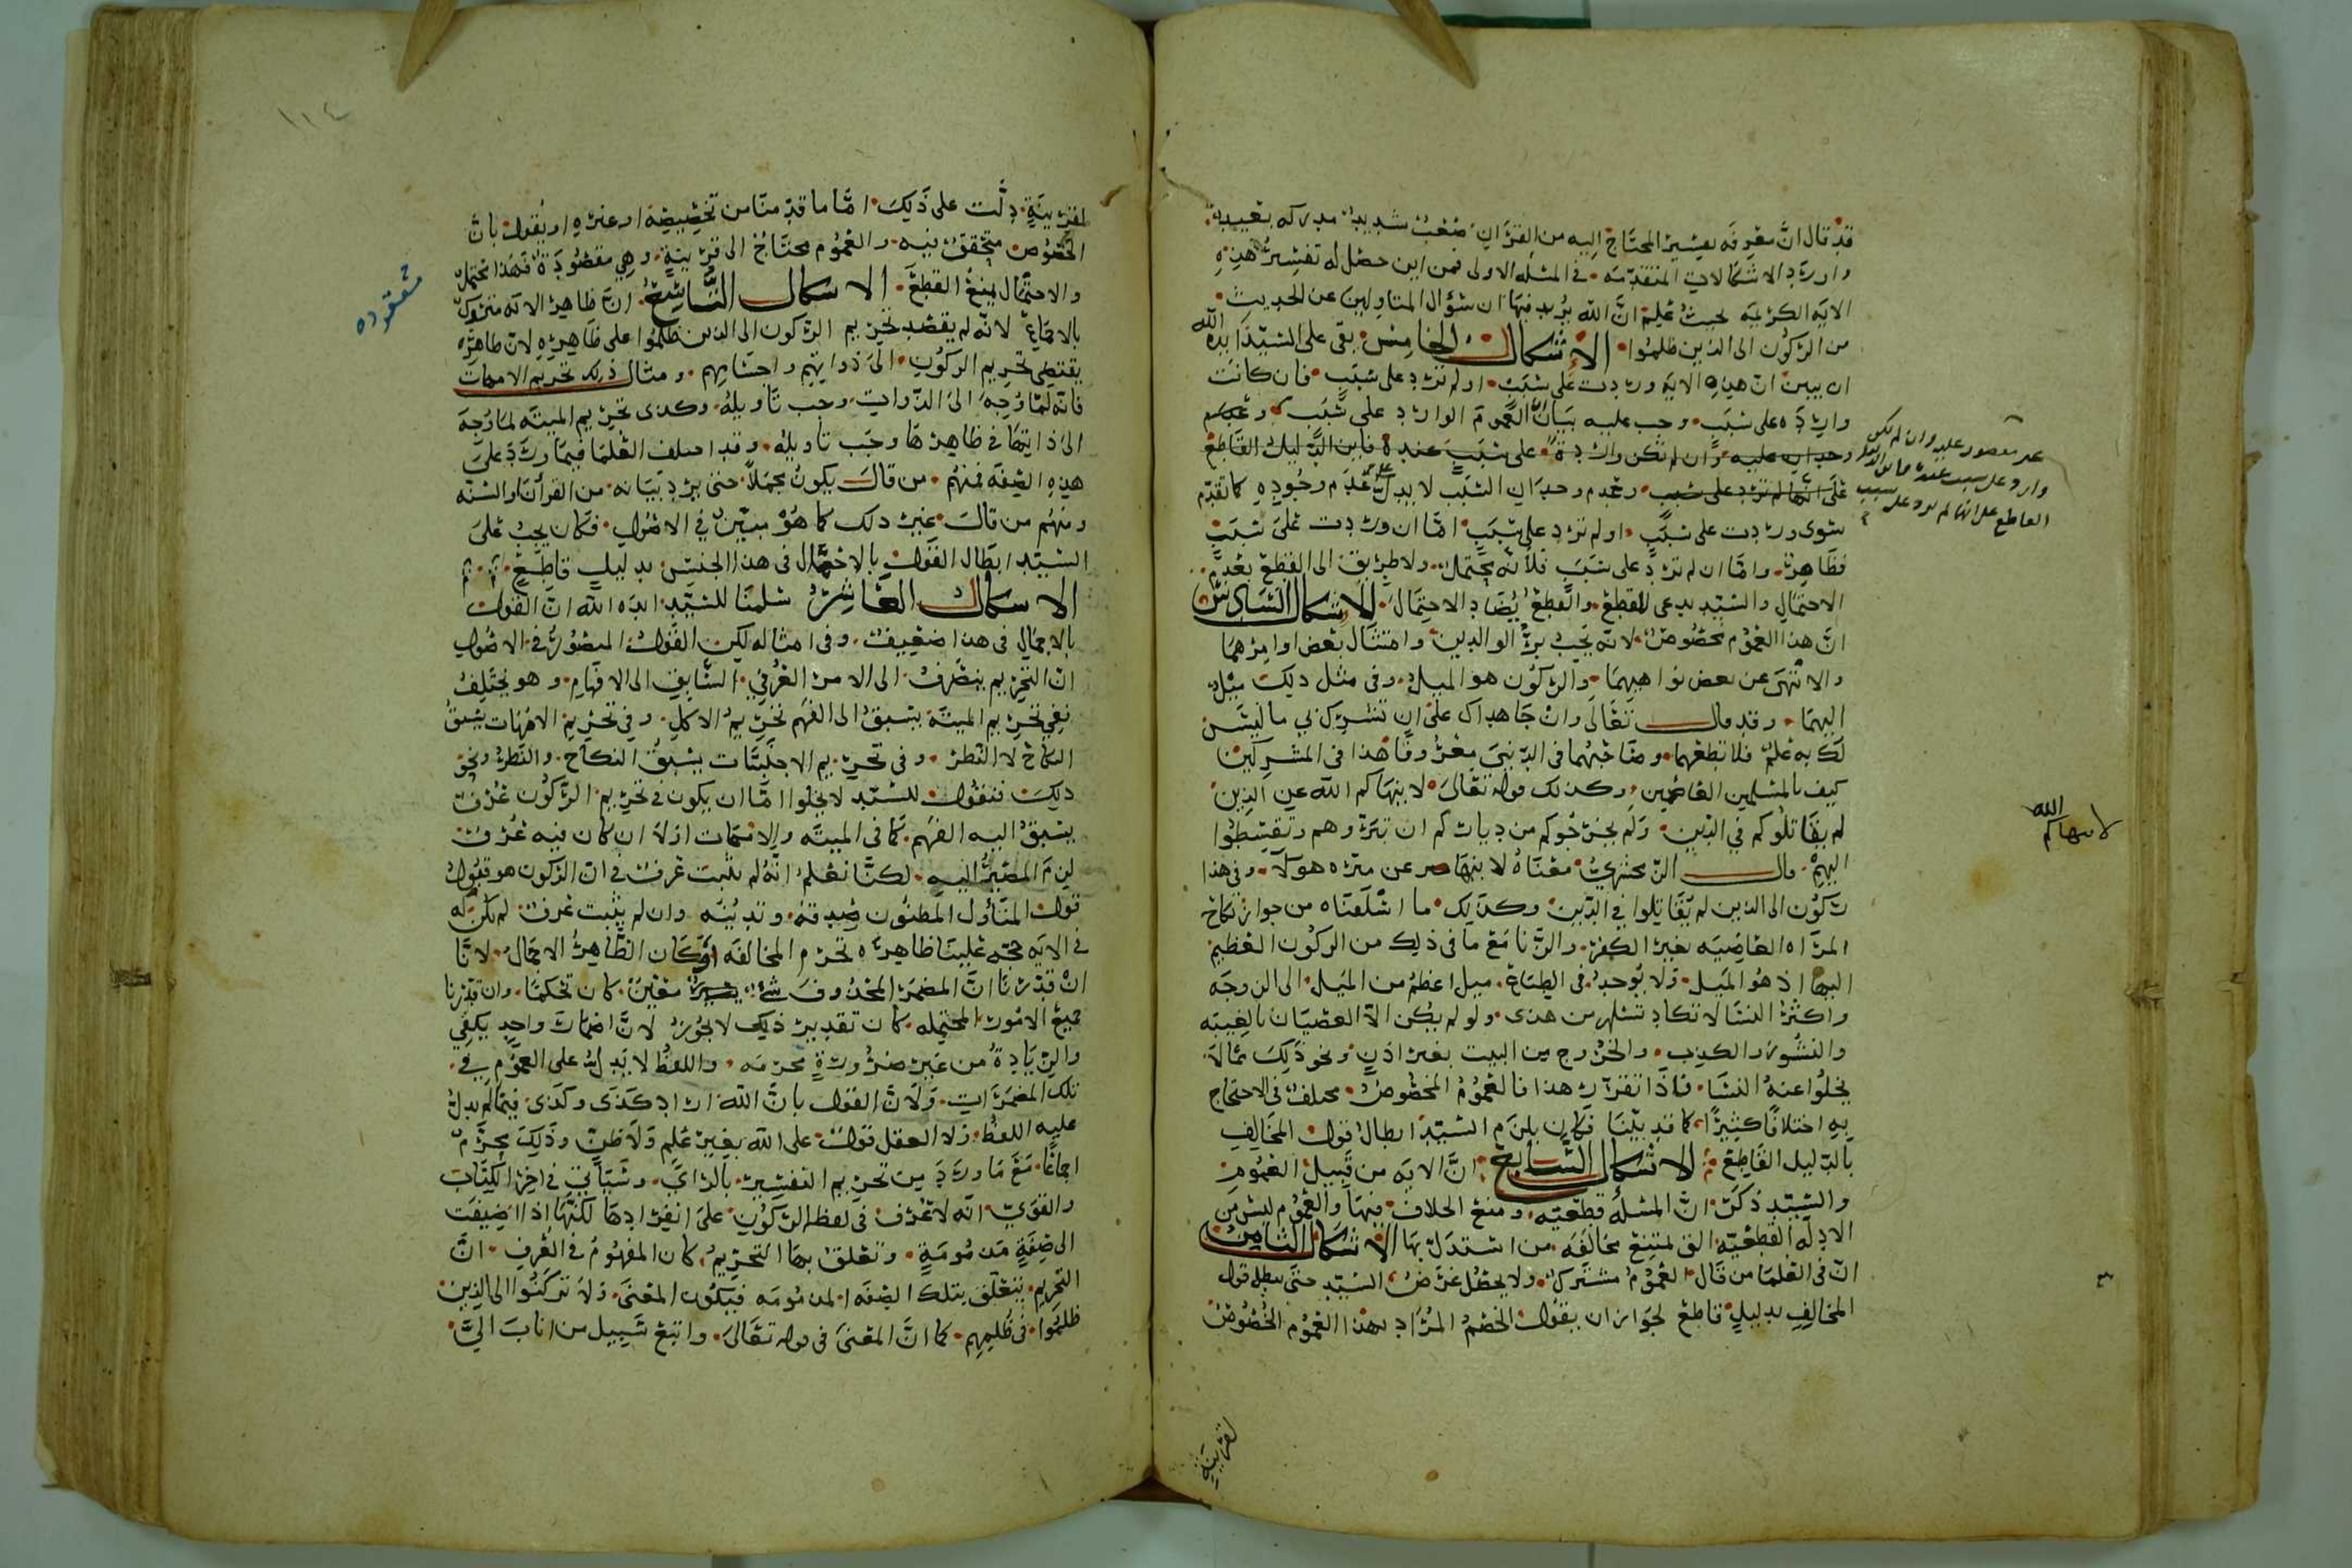 قد قال ان معرفه تفسير المحتاج إليه من القرآن صعب شديد مدركه بعيد
واورد الاشكالات المتقدمه في المسئله الاولى فمن اين حصل له تفسير هذه
الايه الكريمه بحيث علم ان الله يريد فيها ان سؤال المتاولين عن الحديث
من الركون الى الذين ظلموا الاشكال الخامس بقي على السيد ايده الله
ان يبين ان هذه الايه وردت على سبب او لم ترد على سبب فان كانت
وارده على سبب وجب عليه بيان ان العموم الوارد على سبب
وان لم تكن واردة على سبب عنده فاين الدليل القاطع
على انها لم ترد على سبب وعدم وجدان السبب لا يدل على عدم وجوده كما تقدم
سوى وردت على سبب او لم ترد على سبب اما ان وردت على سبب
فظاهر واما ان لم ترد على سبب فلأنه محتمل ولا طريق الى القطع بعدم
الاحتمال والسيد يدعى القطع والقطع يضاد الاحتمال الاشكال السادس
ان هذا العموم مخصوص لانه يجب بر الوالدين وامتثال بعض اوامرهما
والانتهى عن بعض نواهيهما والركون هو الميل وفي مثل ذلك ميل
اليهما وقد قال تعالى وان جاهداك على ان تشرك بي ما ليس
لك به علم فلا تطعهما وصاحبهما في الدنيى معروفا هذا في المشركين
كيف بالمسلمين العاصين وكذلك قوله تعالى لا ينهاكم الله عن الذين
لم يقاتلوكم في الدين ولم يخرجوكم من دياركم ان تبروهم وتقسطوا
اليهم قال الزمخشري معناه لا ينهاكم عن مبره هولآ وفي هذا
ركون الى الذين لم يقاتلوا في الدين وكذلك ما اسلفناه من جواز نكاح
المراه العاصيه بغير الكفر والزنا مع ما في ذلك من الركون العظيم
اليها اذ هو الميل ولا يوجد في الطباع ميل اعظم من الميل الى الزوجه
واكثر النسا لا تكاد تسلم من هذى ولو لم يكن الا العصيان بالغيبه
والنشوز والكذب والخروج من البيت بغير اذن ونحو ذلك مما لا
يخلوا عنه النسا فاذا تقرر هذا فالعموم المخصوص مختلف في الاحتجاج
به اختلافا كثيرا كما قد بينا فكان يلزم السيد ابطال قول المخالف
بالدليل القاطع الاشكال السابع ان الايه من قبيل العموم
والسيد ذكر ان المسئله قطعيه ومنع الخلاف فيها والعموم ليس من
الادله القطعيه التي يمتنع مخالفه من استدل بها الاشكال الثامن
ان في العلما من قال العموم مشترك ولا يحصل غرض السيد حتى يبطل قول
المخالف بدليل قاطع لجواز ان يقول الخصم المراد بهذا العموم الخصوص
لقرينة
وان لم يكن
وارد على سبب عنده فاين الدليل
القاطع على انها لم ترد على سبب
لا ينهاكم الله
١١٤
لقرينة دلت على ذلك اما ما قدمنا من تخصيصه او غيره او يقول بان
الخصوص متحقق فيه والعموم محتاج الى قرينة وهي مفقودة فهذا محتمل
والاحتمال يمنع القطع الاشكال التاسع ان ظاهر الايه متروك
بالاجماع لانه لم يقصد تحريم الركون الى الذين ظلموا على ظاهره لان ظاهره
يقتضي تحريم الركون الى ذواتهم واجسامهم ومثال ذلك تحريم الامهات
فانه لما وجه الى الذوات وجب تاويله وكذى تحريم الميته لما وجه
الى ذاتها في ظاهرها وجب تاويله وقد اختلف العلما فيما ورد على
هذه الصفه فمنهم من قال يكون مجملا حتى يرد بيانه من القرآن والسنه
ومنهم من قال غير ذلك كما هو مبين في الاصول فكان يجب على
السيد ابطال القول بالاجمال في هذا الجنس بدليل قاطع
الاشكال العاشر سلمنا للسيد ايده الله ان القول
بالاجمال في هذا ضعيف وفي امثاله لكن القول المنصور في الاصول
ان التحريم ينصرف الى الامر العرفي السابق الى الافهام وهو يختلف
ففي تحريم الميتة يسبق الى الفهم تحريم الاكل وفي تحريم الامهات يسبق
النكاح لا النظر وفي تحريم الاجنبيات يسبق النكاح والنظر ونحو
ذلك فنقول للسيد لا يخلوا اما ان يكون في تحريم الركون عرف
يسبق اليه الفهم كما في الميته والامهات اولا ان كان فيه عرف
لزم المصير اليه لكنا نعلم انه لم يثبت عرف في ان الركون هو قبول
قول المتأول المظنون صدقه وتدينه وان لم يثبت عرف لم يكن له
في الايه حجه علينا ظاهره تحرم المخالفه وكان الظاهر الاجمال لانا
ان قدرنا ان المضمر المحذوف شئ معين كان تحكما وان قدرنا
جميع الامور المحتمله كان تقدير ذلك لا يجوز لان اضمار واحد يكفي
والزيادة من غير ضرورة محرمه واللفظ لا يدل على العموم في
تلك المضمرات ولان القول بان الله اراد كذى وكذى فيما لم يدل
عليه اللفظ ولا العقل قول على الله بغير علم ولا ظن وذلك محرم
اجماعا مع ما ورد من تحريم التفسير بالراي وسياتي في اخر الكتاب
والقوي انه لا عرف في لفظ الركون على انفرادها لكنها اذا اضيفت
الى صفة مذمومة وتعلق بها التحريم كان المفهوم في العرف ان
التحريم يتعلق بتلك الصفه المذمومه فيكون المعنى ولا تركنوا الى الذين
ظلموا في ظلمهم كما ان المعنى في قوله تعالى واتبع سبيل من اناب الي